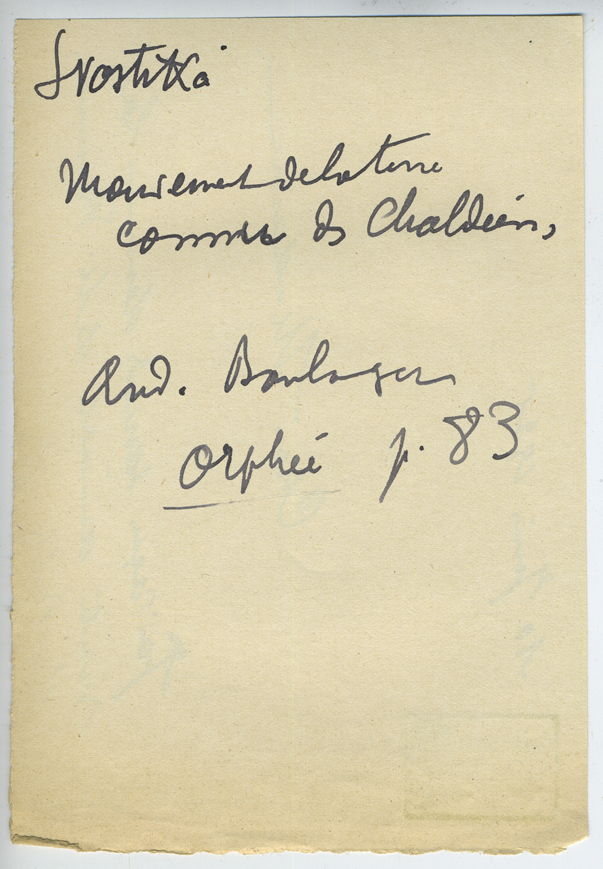 Svastika
Mouvement de la terre
connu des Chaldéens,
And. Boulanger
Orphée p. 83